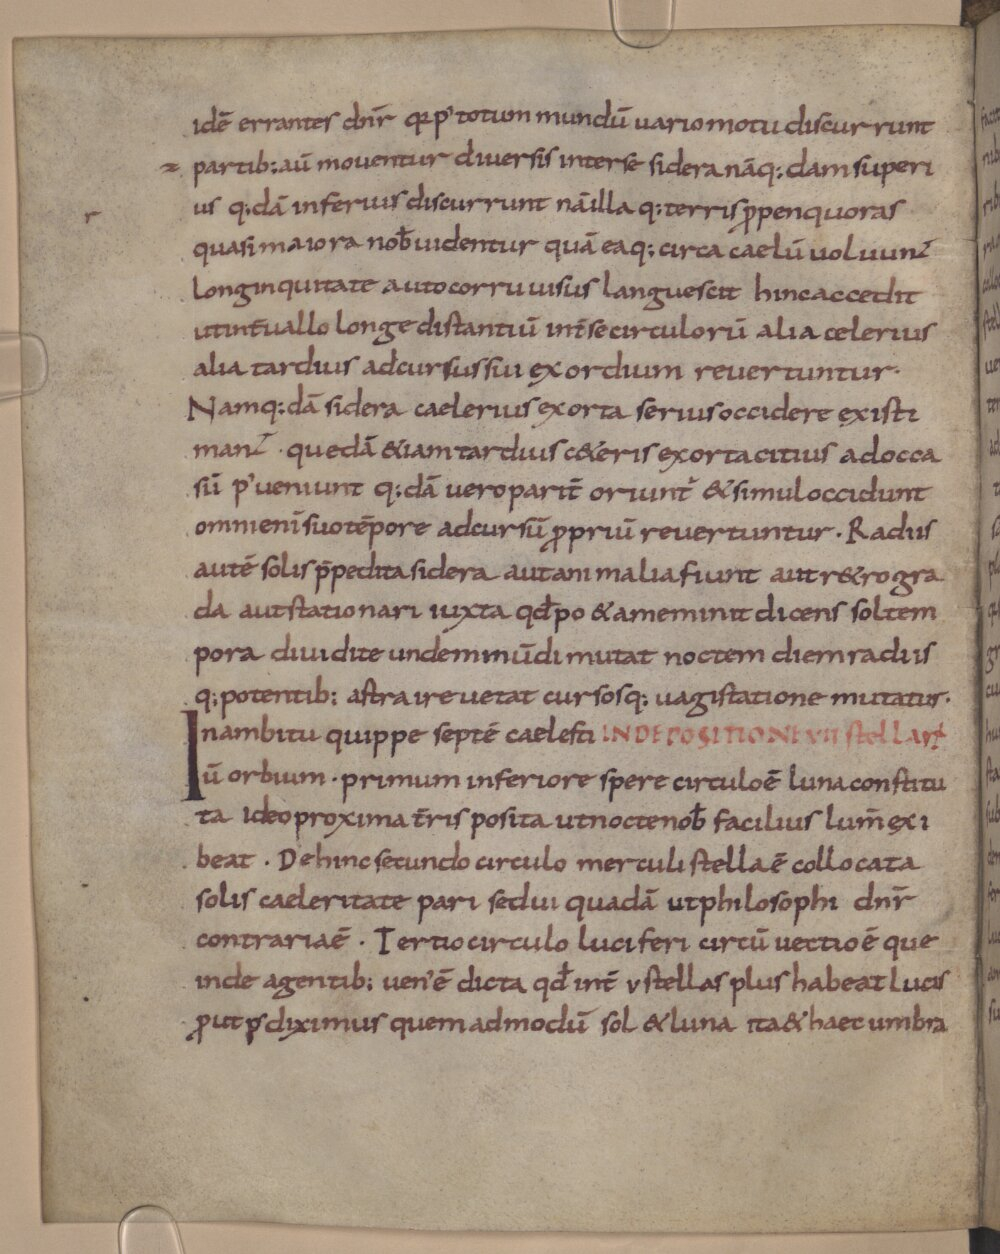 idē errantes dnr̄ qꝛ p' totum mundū uario motu discurrunt
partib; aū mouentur diuersis inter se sidera nāq; dam superi
us q;dā inferius discurrunt nā illa q; terris ꝓpenquoras
quasi maiora nob̄ uidentur quā ea q; circa caelū uoluun̄
longinquitate autocorru uisus languescit hinc accedit
ut int̄uallo longe distantiū int̄ se circulorū alia celerius
alia tardius ad cursus sui exordium reuertuntur·
Namq; dā sidera caelerius exorta serius occidere existi
man̄ · quedā &iam tardius c&eris exorta citius ad occa
sū p'ueniunt q;dā uero parit̄ oriunt̄ & simul occidunt
omni eni suo tēpore ad cursū ꝓpriū reuertuntur · Radiis
autē solis p̄pedita sidera aut animalia fiunt aut r&rogra
da aut stationari iuxta qd̄ po&a meminit dicens sol tem
pora diuidit eundem mūdi mutat noctem diem radiis
q; potentib; astra ire uetat cursosq; uagi statione mutatur·
In ambitu quippe septē caelesti INDEPOSITIONE VII stellarū
ū orbium · primum inferiore spere circulo ē luna constitu
ta ideo proxima t̄ris posita ut nocte nob̄ facilius lum̄ exi
beat · Dehinc secundo circulo merculi stella ē collocata
solis caeleritate pari sed ui quadā ut philosophi dnr̄
contraria ē · Tertio circulo luciferi circū uectio ē que
inde agentib; uen'ē dicta qd̄ int̄ v stellas plus habeat lucis
ꝓut p̄ diximus quemadmodū sol & luna ita & haec umbra